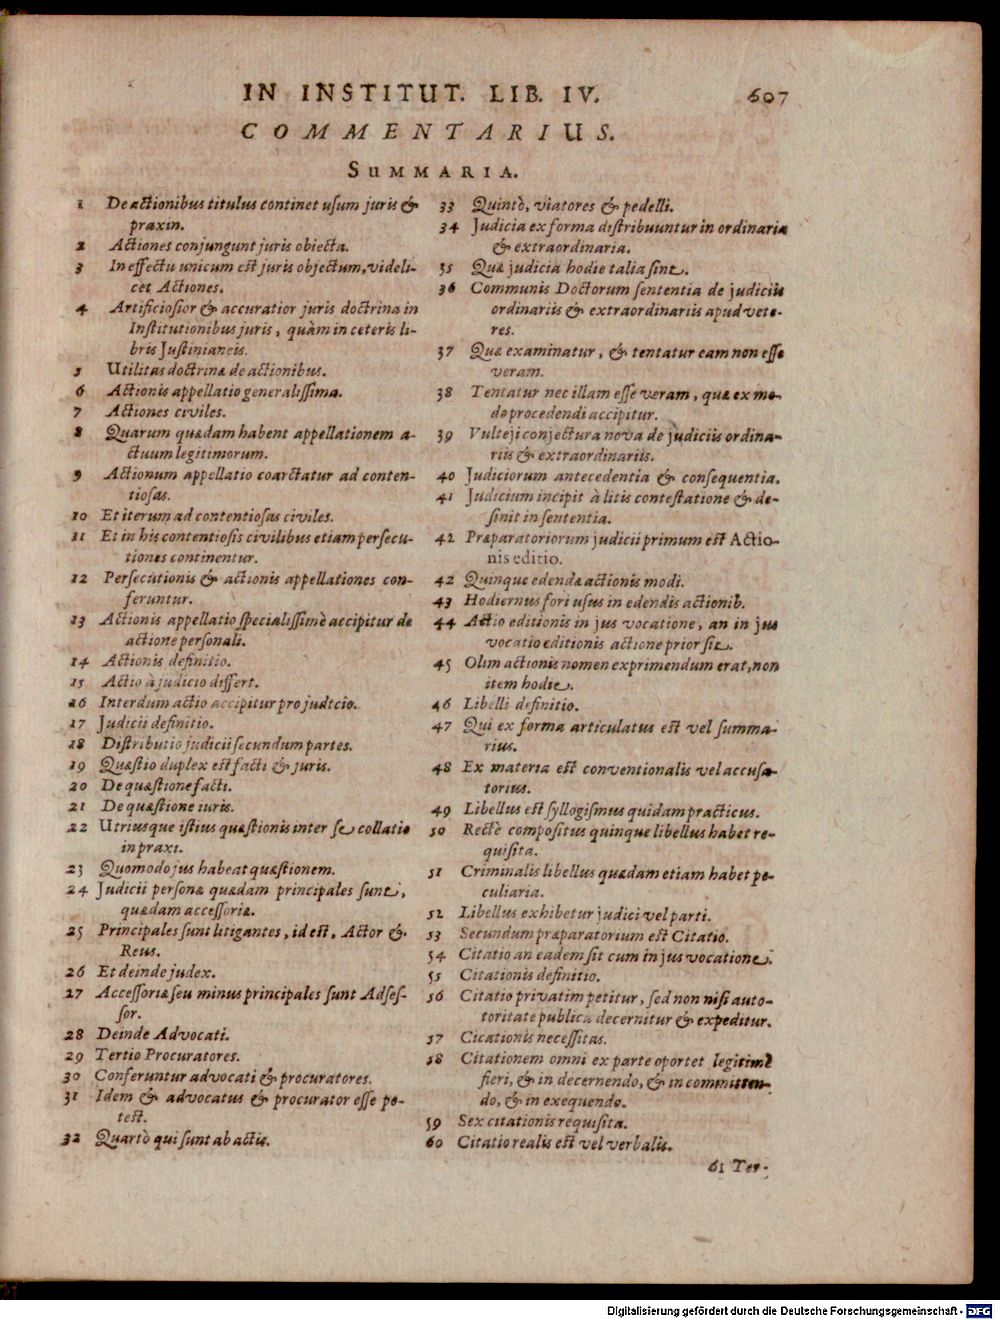 IN INSTITUT. LIB. IV. 607
COMMENTARIUS.
SUMMARIA.
1 De actionibus titulus continet usum juris &
praxin.
2 Actiones conjungunt juris obiecta.
3 In effectu unicum est juris objectum, videli-
cet Actiones.
4 Artificiosior & accuratior juris doctrina in
Institutionibus juris, quàm in ceteris li-
bris Justinianeis.
5 Utilitas doctrinæ de actionibus.
6 Actionis appellatio generalissima.
7 Actiones civiles.
8 Quarum quædam habent appellationem a-
ctuum legitimorum.
9 Actionum appellatio coarctatur ad conten-
tiosas.
10 Et iterum ad contentiosas civiles.
11 Et in his contentiosis civilibus etiam persecu-
tiones continentur.
12 Persecutionis & actionis appellationes con-
feruntur.
13 Actionis appellatio specialissimè accipitur de
actione personali.
14 Actionis definitio.
15 Actio à judicio differt.
16 Interdum actio accipitur pro judicio.
17 Judicii definitio.
18 Distributio judicii secundum partes.
19 Quæstio duplex est facti & juris.
20 De quæstione facti.
21 De quæstione iuris.
22 Utriusque istius quæstionis inter se collatio
in praxi.
23 Quomodo jus habeat quæstionem.
24 Judicii personæ quædam principales sunt,
quædam accessoriæ.
25 Principales sunt litigantes, id est, Actor &
Reus.
26 Et deinde judex.
27 Accessoriæ seu minus principales sunt Adses-
sor.
28 Deinde Advocati.
29 Tertio Procuratores.
30 Conferuntur advocati & procuratores.
31 Idem & advocatus & procurator esse po-
test.
32 Quartò qui sunt ab actis.
33 Quintò, viatores & pedelli.
34 Judicia ex forma distribuuntur in ordinaria
& extraordinaria.
35 Quæ judicia hodie talia sint.
36 Communis Doctorum sententia de judiciis
ordinariis & extraordinariis apud vete-
res.
37 Quæ examinatur, & tentatur eam non esse
veram.
38 Tentatur nec illam esse veram, quæ ex mo-
do procedendi accipitur.
39 Vulteji conjectura nova de judiciis ordina-
riis & extraordinariis.
40 Judiciorum antecedentia & consequentia.
41 Judicium incipit à litis contestatione & de-
sinit in sententia.
42 Præparatoriorum judicii primum est Actio-
nis editio.
42 Quinque edendæ actionis modi.
43 Hodiernus fori usus in edendis actionib.
44 Actio editionis in jus vocatione, an in jus
vocatio editionis actione prior sit.
45 Olim actionis nomen exprimendum erat, non
item hodie.
46 Libelli definitio.
47 Qui ex forma articulatus est vel summa-
rius.
48 Ex materia est conventionalis vel accusa-
torius.
49 Libellus est syllogismus quidam practicus.
50 Rectè compositus quinque libellus habet re-
quisita.
51 Criminalis libellus quædam etiam habet pe-
culiaria.
52 Libellus exhibetur judici vel parti.
53 Secundum præparatorium est Citatio.
54 Citatio an eadem sit cum in jus vocatione.
55 Citationis definitio.
56 Citatio privatim petitur, sed non nisi auto-
toritate publica decernitur & expeditur.
57 Cicationis necessitas.
58 Citationem omni ex parte oportet legitimè
fieri, & in decernendo, & in committen-
do, & in exequendo.
59 Sex citationis requisita.
60 Citatio realis est vel verbalis.
61 Ter-
Digitalisierung gefördert durch die Deutsche Forschungsgemeinschaft - DFG